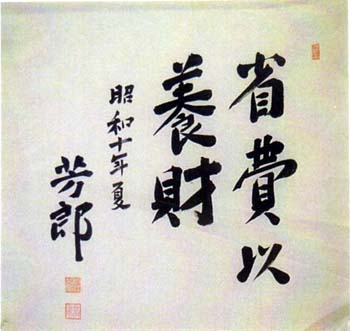 省費以
養財
昭和十年夏
芳郎